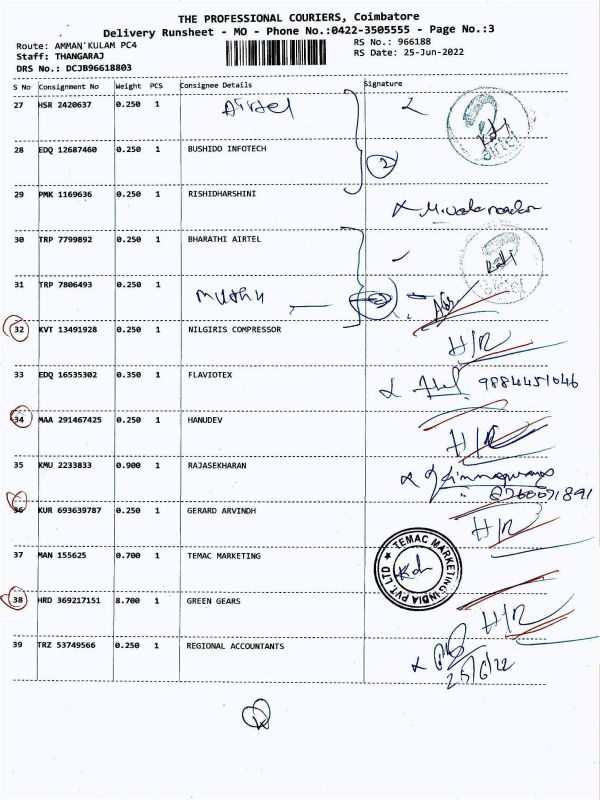 THE PROFESSIONAL COURIERS, Coimbatore
Delivery Runsheet - MO - Phone No.:0422-3505555 - Page No.:3
Route: AMMAN KULAM PC4 RS No.: 966188
Staff: THANGARAJ RS Date: 25-Jun-2022
DRS No.: DCJB96618803
S No Consignment No Weight PCS Consignee Details Signature
27 HSR 2420637 0.250 1 Airtel
airtel
28 EDQ 12687460 0.250 1 BUSHIDO INFOTECH 2
29 PMK 1169636 0.250 1 RISHIDHARSHINI
30 TRP 7799892 0.250 1 BHARATHI AIRTEL
31 TRP 7806493 0.250 1 Muthu airtel
32 KVT 13491928 0.250 1 NILGIRIS COMPRESSOR H/R
33 EDQ 16535302 0.350 1 FLAVIOTEX 9884451046
34 MAA 291467425 0.250 1 HANUDEV H/R
35 KMU 2233833 0.900 1 RAJASEKHARAN
8760071891
36 KUR 693639787 0.250 1 GERARD ARVINDH H/R
37 MAN 155625 0.700 1 TEMAC MARKETING TEMAC MARKETING INDIA PVT. LTD
38 HRD 369217151 8.700 1 GREEN GEARS H/R
39 TRZ 53749566 0.250 1 REGIONAL ACCOUNTANTS
25/6/22